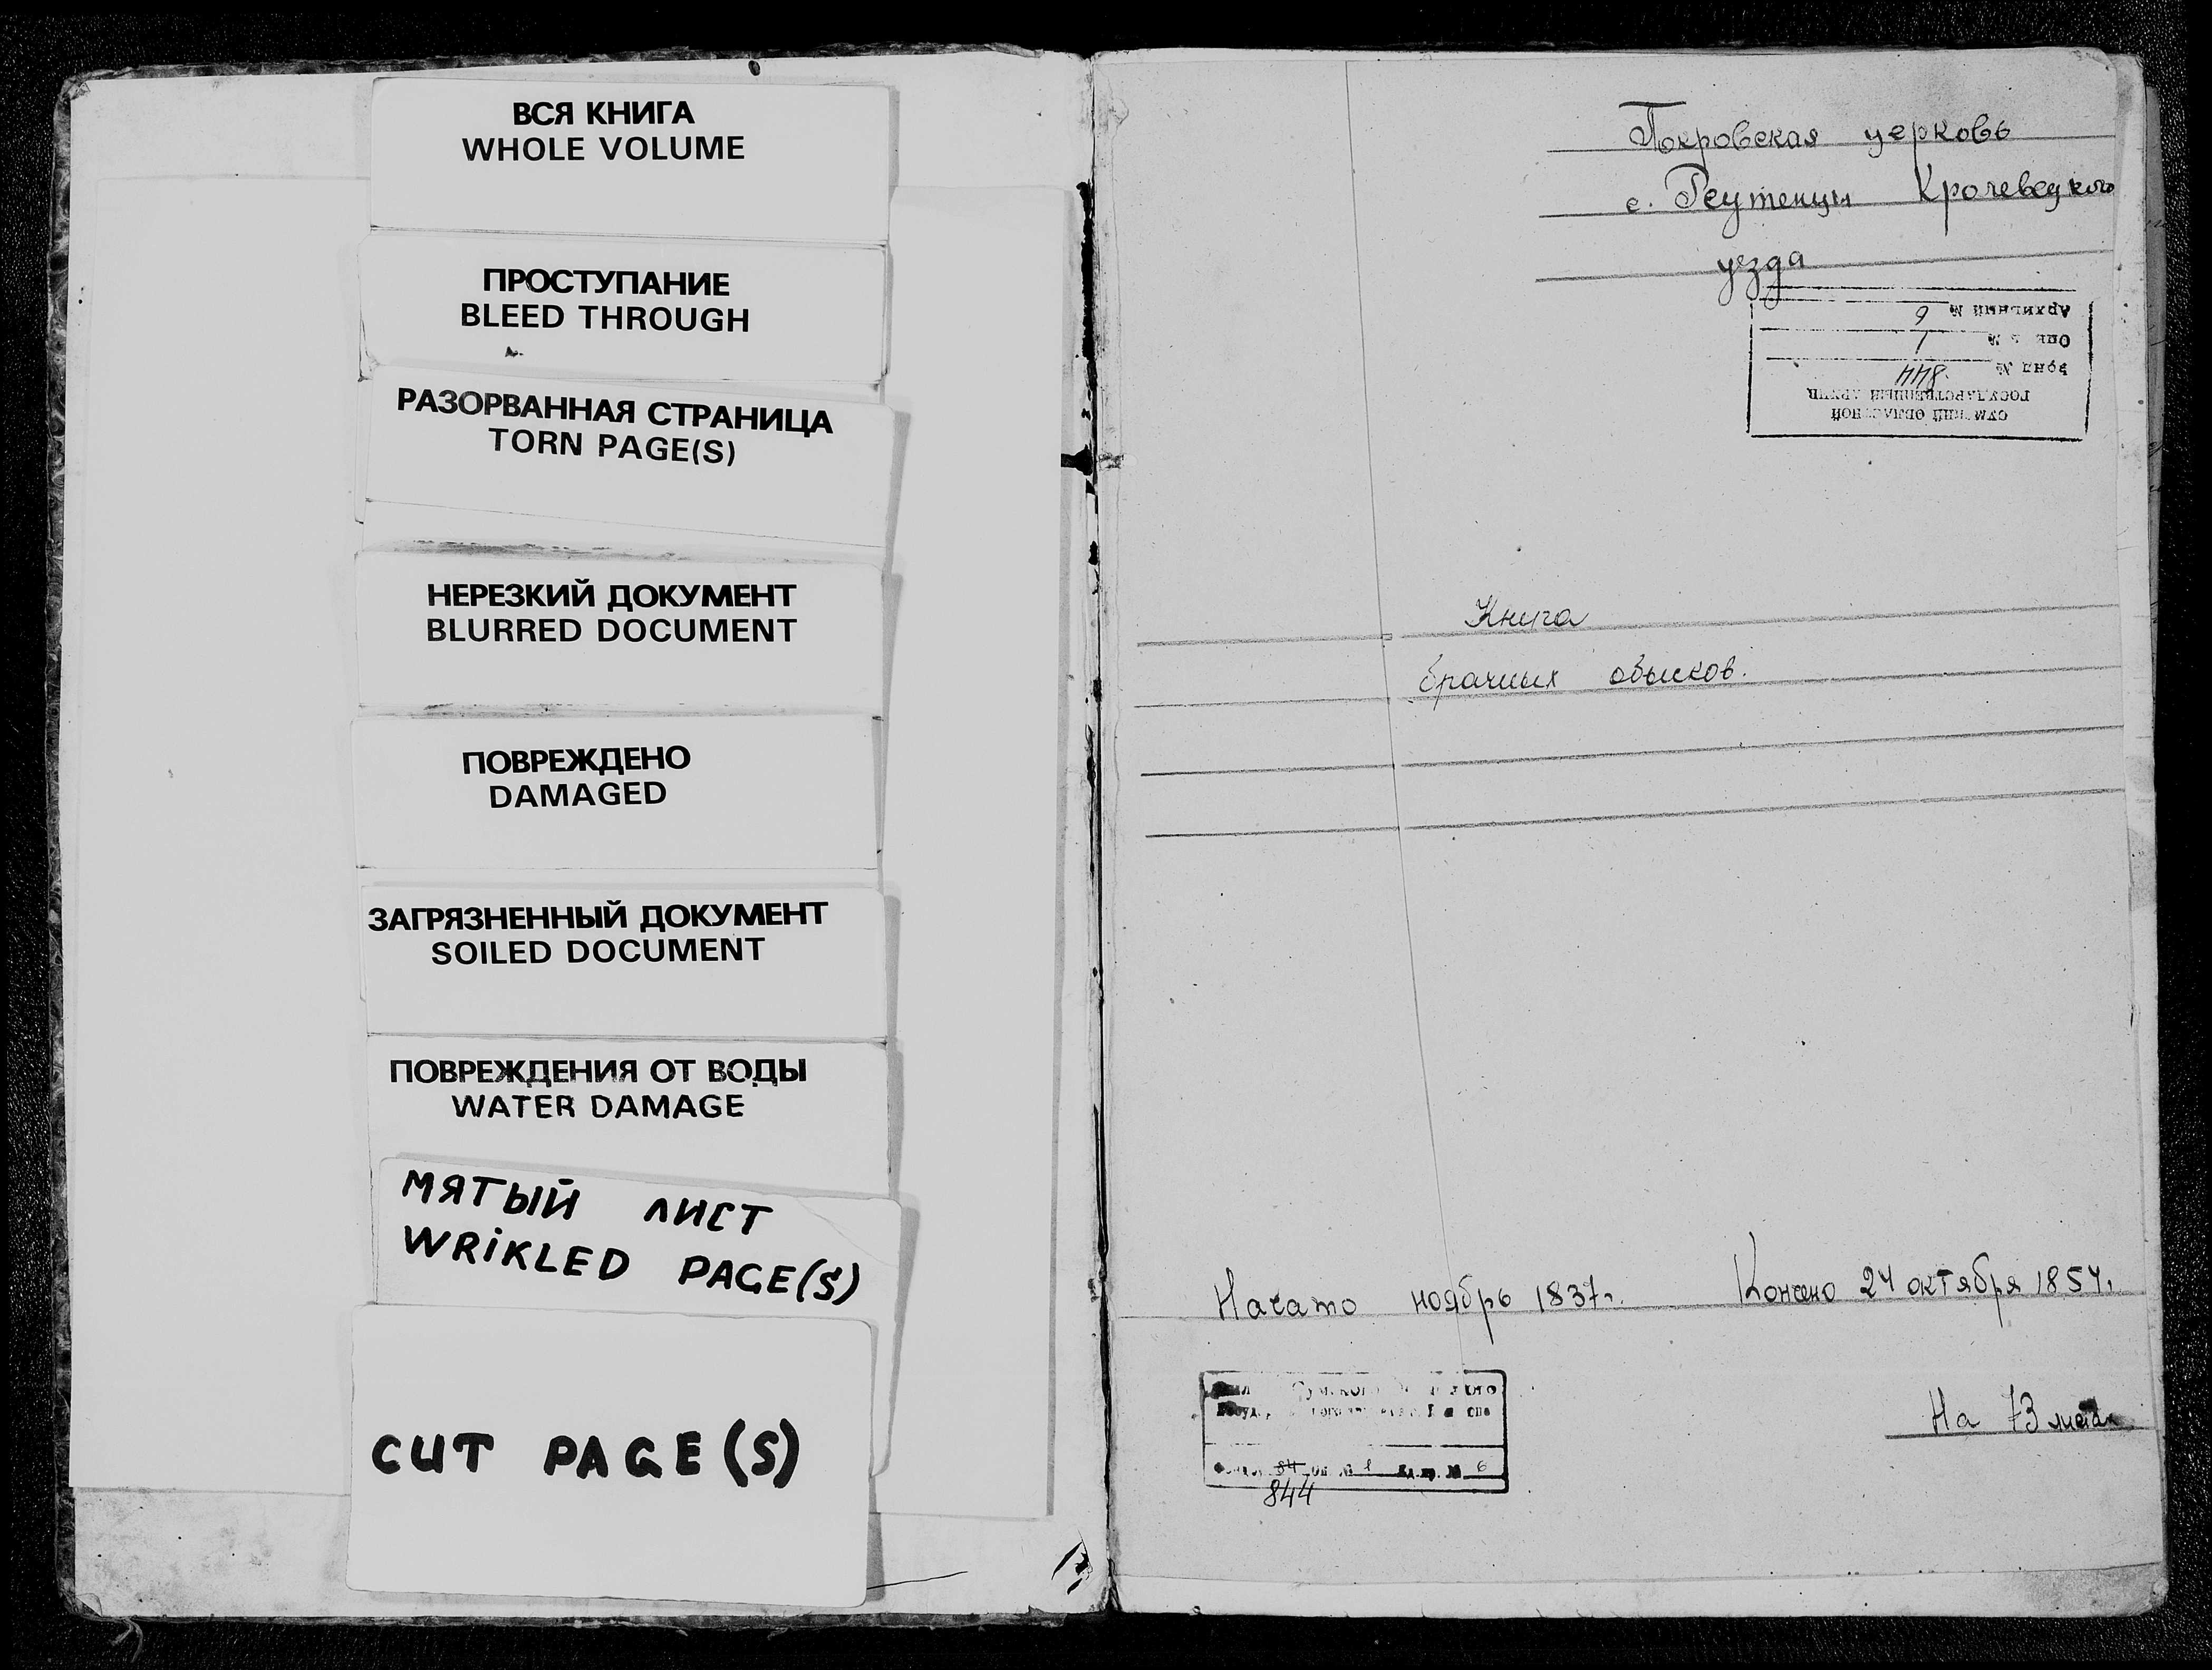 ВСЯ КНИГА
WHOLE VOLUME
ПРОСТУПАНИЕ
BLEED THROUGH
РАЗОРВАННАЯ СТРАНИЦА
TORN PAGE(S)
НЕРЕЗКИЙ ДОКУМЕНТ
BLURRED DOCUMENT
ПОВРЕЖДЕНО
DAMAGED
ЗАГРЯЗНЕННЫЙ ДОКУМЕНТ
SOILED DOCUMENT
ПОВРЕЖДЕНИЯ ОТ ВОДЫ
WATER DAMAGE
МЯТЫЙ ЛИСТ
WRIKLED PAGE(S)
CUT PAGE(S)
Покровская церковь
с. Реутенцы Кролевецкого
уезда
СУМСКИЙ ОБЛАСТНОЙ
ГОСУДАРСТВЕННЫЙ АРХИВ
Фонд № 844
Опись № 1
Архивный № 6
Книга
брачных обысков.
Начато ноябрь 1837г. Кончено 24 октября 1854г.
На 73 листах
84 Оп. № 1 Ед. хр. № 6
844